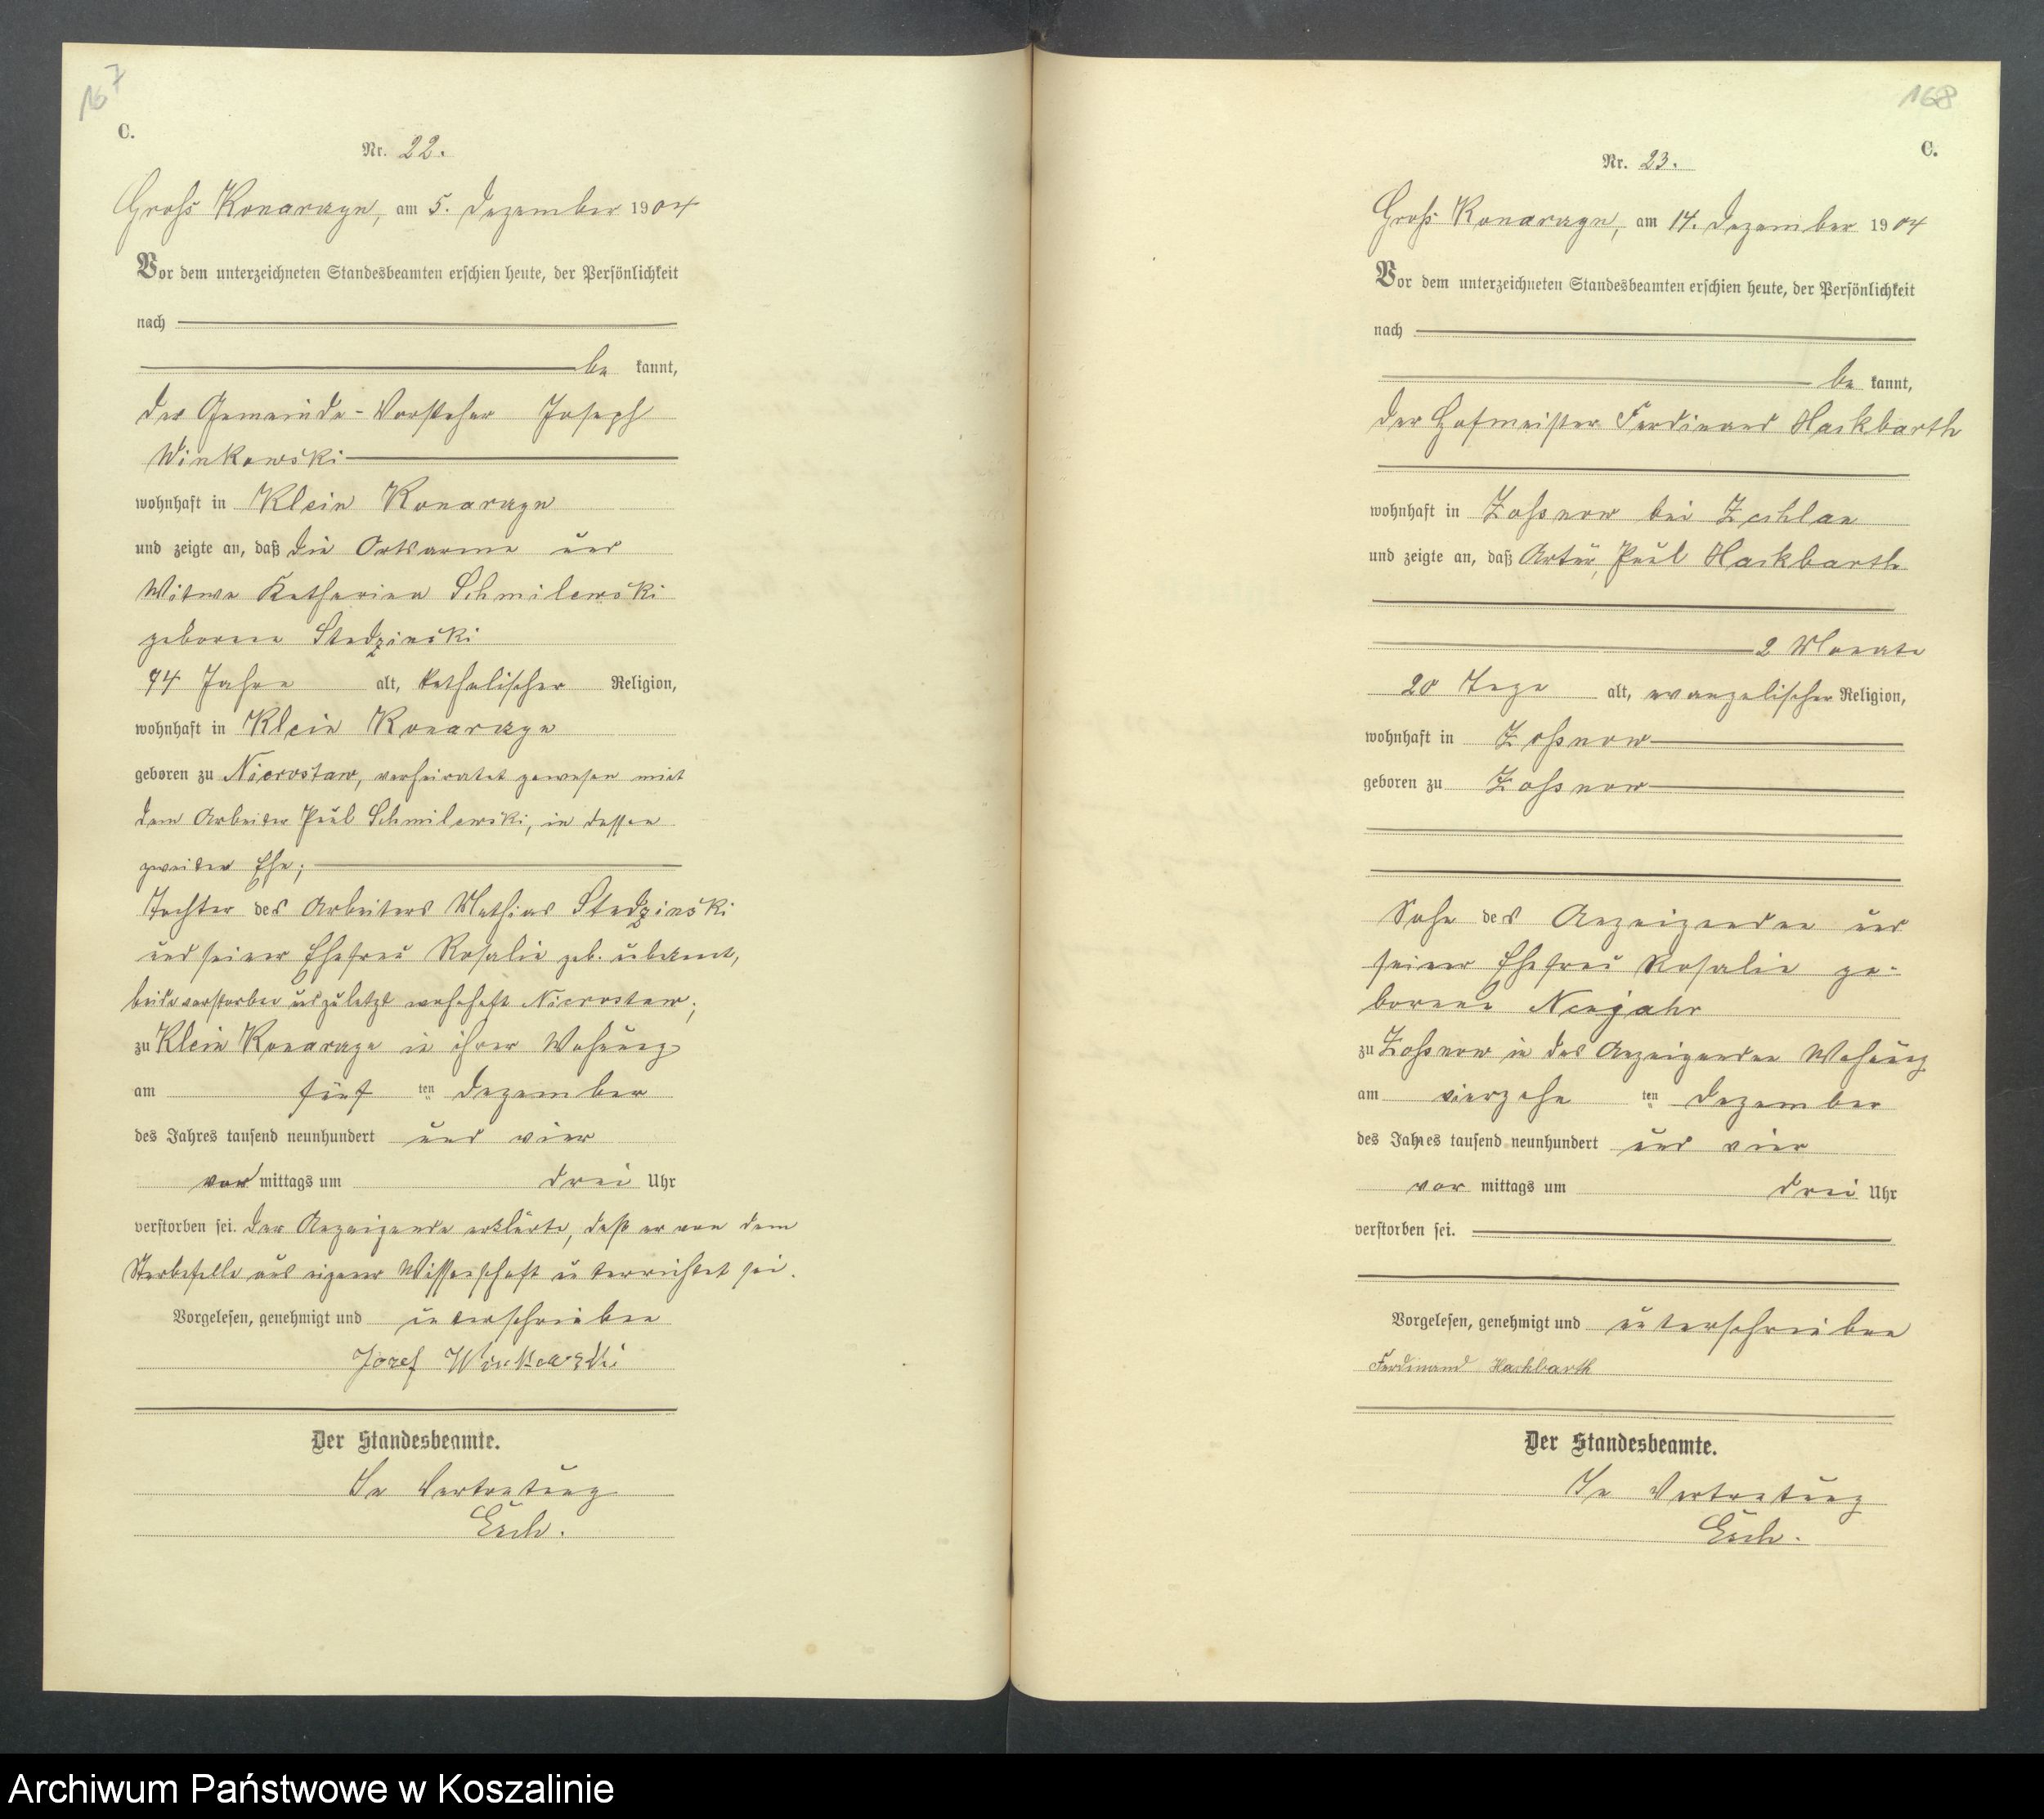 167
C.
Nr. 22.
Gross Konarzyn, am 5. Dezember 1904
Vor dem unterzeichneten Standesbeamten erschien heute, der Persönlichkeit
nach
be kannt,
der Gemeinde-Vorsteher Joseph
Winkowski
wohnhaft in Klein Konarzyn
und zeigte an, daß die Ortsarme und
Witwe Katharina Schmilewski
geborene Stedzinski
74 Jahre alt, katholischer Religion,
wohnhaft in Klein Konarzyn
geboren zu Nierostaw, verheiratet gewesen mit
dem Arbeiter Paul Schmilewski, in dessen
zweiter Ehe;
Tochter des Arbeiters Mathias Stedzinski
und seiner Ehefrau Rosalie geb. unbekannt,
beide verstorben und zuletzt wohnhaft Nierostaw;
zu Klein Konarzyn in ihrer Wohnung
am fünf ten Dezember
des Jahres tausend neunhundert und vier
vor mittags um drei Uhr
verstorben sei. Der Anzeigende erklärte, daß er von dem
Sterbefalle aus eigener Wissenschaft unterrichtet sei.
Vorgelesen, genehmigt und unterschrieben
Jozef Winkowski
Der Standesbeamte.
In Vertretung
Esch.
168
C.
Nr. 23.
Gross Konarzyn, am 14. Dezember 1904
Vor dem unterzeichneten Standesbeamten erschien heute, der Persönlichkeit
nach
be kannt,
der Hofmeister Ferdinand Hackbarth
wohnhaft in Zossnow bei Zechlau
und zeigte an, daß Artur, Paul Hackbarth
2 Monate
20 Tage alt, evangelischer Religion,
wohnhaft in Zossnow
geboren zu Zossnow
Sohn des Anzeigenden und
seiner Ehefrau Rosalie ge-
borene Neujahr
zu Zossnow in des Anzeigenden Wohnung
am vierzehn ten Dezember
des Jahres tausend neunhundert und vier
vor mittags um drei Uhr
verstorben sei.
Vorgelesen, genehmigt und unterschrieben
Ferdinand Hackbarth
Der Standesbeamte.
In Vertretung
Esch.
Archiwum Państwowe w Koszalinie